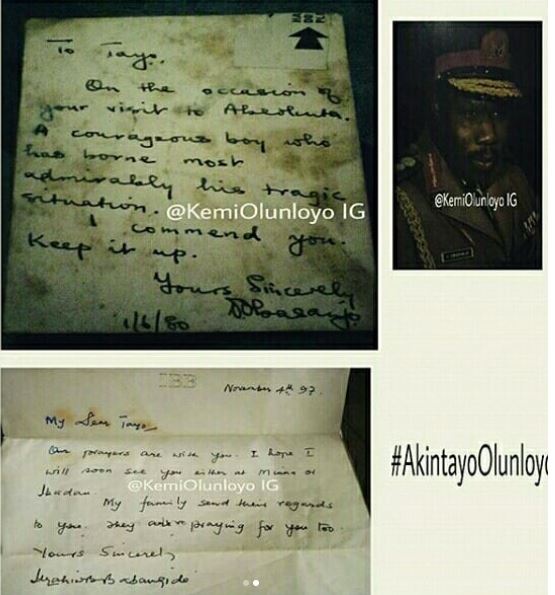 To Tayo.
On the occasion of
your visit to Abeokuta.
A courageous boy who
has borne most
admirably his tragic
situation.
@KemiOlunloyo IG
I commend you.
Keep it up.
Yours Sincerely
1/6/80
@KemiOlunloyo IG
IBB
November 4th 97.
My Dear Tayo,
Our prayers are with you. I hope I
will soon see you either at Minna or
Ibadan.
@KemiOlunloyo IG
My family send their regards
to you. They are praying for you too.
Yours Sincerely
#AkintayoOlunloyo